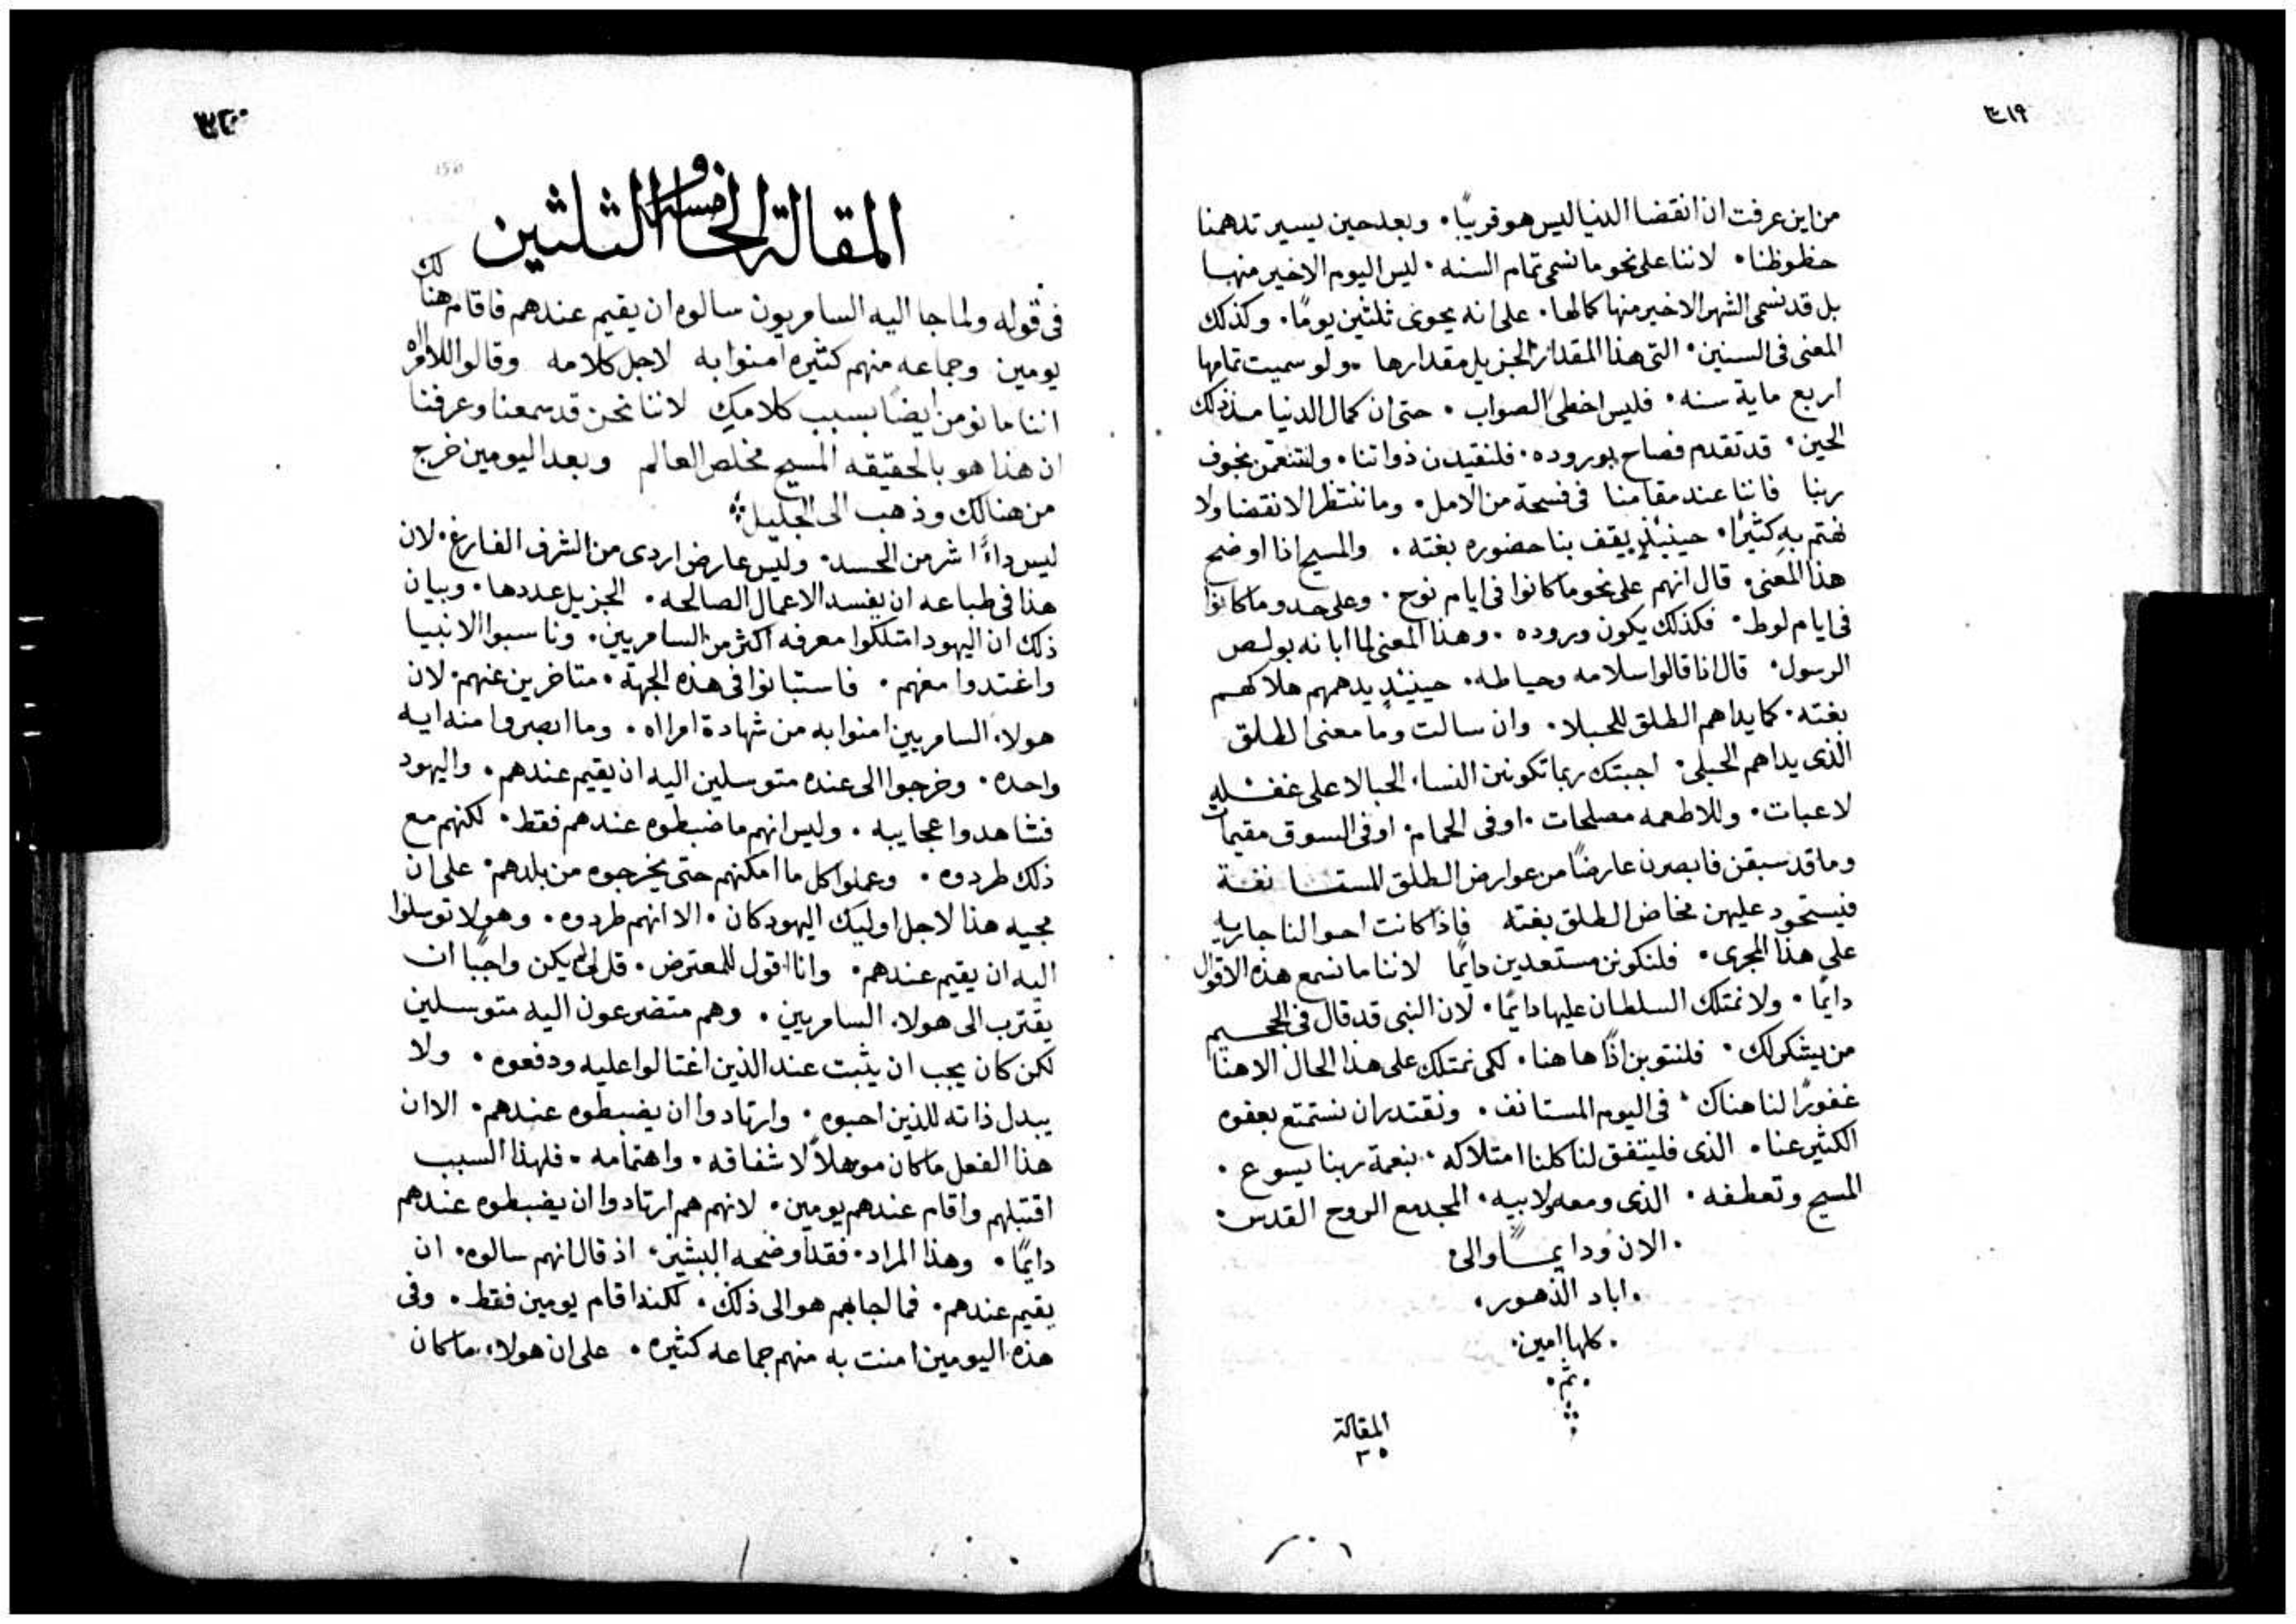 ٣١٩
من اين عرفت ان انقضا الدنيا ليس هو قريبًا. وبعد حين يسير تدهمنا
حظوظنا. لاننا على نحو ما نسمى تمام السنه. ليس اليوم الاخير منها
بل قد نسمى الشهر الاخير منها كمالها. على انه يحوى ثلثين يومًا. وكذلك
المعنى فى السنين. التى هذا المقدار الجزيل مقدارها. ولو سميت تمامها
اربع ماية سنه. فليس اخطى الصواب. حتى ان كمال الدنيا منذ ذلك
الحين. قد تقدم فصاح بوروده. فلنقيدن ذواتنا. ولنتنعمن بخوف
ربنا فاننا عند مقامنا فى فسحة من الامل. وما ننتظر الانقضا ولا
نهتم به كثيرًا. حينيذٍ يقف بنا حضوره بغته. والمسيح اذا اوضح
هذا المعنى. قال انهم على نحو ما كانوا فى ايام نوح. وعلى حدو ما كانوا
فى ايام لوط. فكذلك يكون وروده. وهذا المعنى لما ابانه بولص
الرسول. قال اذا قالوا سلامه وحياطه. حينيذٍ يدهمهم هلاكهم
بغته. كما يداهم الطلق للحبلا. وان سالت وما معنى الطلق
الذى يداهم الحبلى. اجبتك ربما تكونن النسا الحبالا على غفله
لاعبات. وللاطعمه مصلحات. او فى الحمام. او فى السوق مقيمات
وما قد سبقن فابصرن عارضًا من عوارض الطلق المستانفة
فيستحود عليهن مخاض الطلق بغته فاذا كانت احوالنا جاريه
على هذا المجرى. فلنكونن مستعدين دايمًا لاننا ما نسمع هذه الاقوال
دايمًا. ولا نمتلك السلطان عليها دايمًا. لان النبى قد قال فى الجحيم
من يشكر لك. فلنتوبن اذًا ها هنا. لكى نمتلك على هذا الحال الاهنا
غفورًا لنا هناك. فى اليوم المستانف. ونقتدر ان نستمتع بعفوه
الكثير عنا. الذى فليتفق لنا كلنا امتلاكه. بنعمة ربنا يسوع.
المسيح وتعطفه. الذى ومعه لابيه. المجد مع الروح القدس.
.الان ودايمًا والى
.اباد الدهور.
.كلها امين.
.تم.
المقالة
٣٥
٣٢٠
المقالة الخامسة والثلثين
فى قوله ولما جا اليه السامريون سالوه ان يقيم عندهم فاقام هنالك
يومين وجماعه منهم كثيره امنوا به لاجل كلامه وقالوا للامراه
اننا ما نومن ايضًا بسبب كلامك لاننا نحن قد سمعنا وعرفنا
ان هذا هو بالحقيقه المسيح مخلص العالم وبعد اليومين خرج
من هنالك وذهب الى الجليل
ليس داءً اشر من الحسد. وليس عارض اردى من الشرف الفارغ. لان
هذا فى طباعه ان يفسد الاعمال الصالحه. الجزيل عددها. وبيان
ذلك ان اليهود امتلكوا معرفه اكثر من السامريين. وناسبوا الانبيا
واغتدوا معهم. فاستبانوا فى هذه الجهة. متاخرين عنهم. لان
هولاء السامريين امنوا به من شهادة امراه. وما ابصروا منه ايه
واحده. وخرجوا الى عنده متوسلين اليه ان يقيم عندهم. واليهود
فشاهدوا عجايبه. وليس انهم ما ضبطوه عندهم فقط. لكنهم مع
ذلك طردوه. وعملوا كل ما امكنهم حتى يخرجوه من بلدهم. على ان
مجيه هذا لاجل اوليك اليهود كان. الا انهم طردوه. وهولا توسلوا
اليه ان يقيم عندهم. وانا اقول للمعترض. قل لى الم يكن واجبًا ان
يقترب الى هولاء السامريين. وهم متضرعون اليه متوسلين
لكن كان يجب ان يثبت عند الذين اغتالوا عليه ودفعوه. ولا
يبدل ذاته للذين احبوه. وارتادوا ان يضبطوه عندهم. الا ان
هذا الفعل ما كان موهلاً لاشفاقه. واهتمامه. فلهذا السبب
اقتبلهم واقام عندهم يومين. لانهم هم ارتادوا ان يضبطوه عندهم
دايمًا. وهذا المراد. فقد اوضحه البشير. اذ قال انهم سالوه. ان
يقيم عندهم. فما اجابهم هو الى ذلك. لكنه اقام يومين فقط. وفى
هذه اليومين امنت به منهم جماعه كثيره. على ان هولاء ما كان